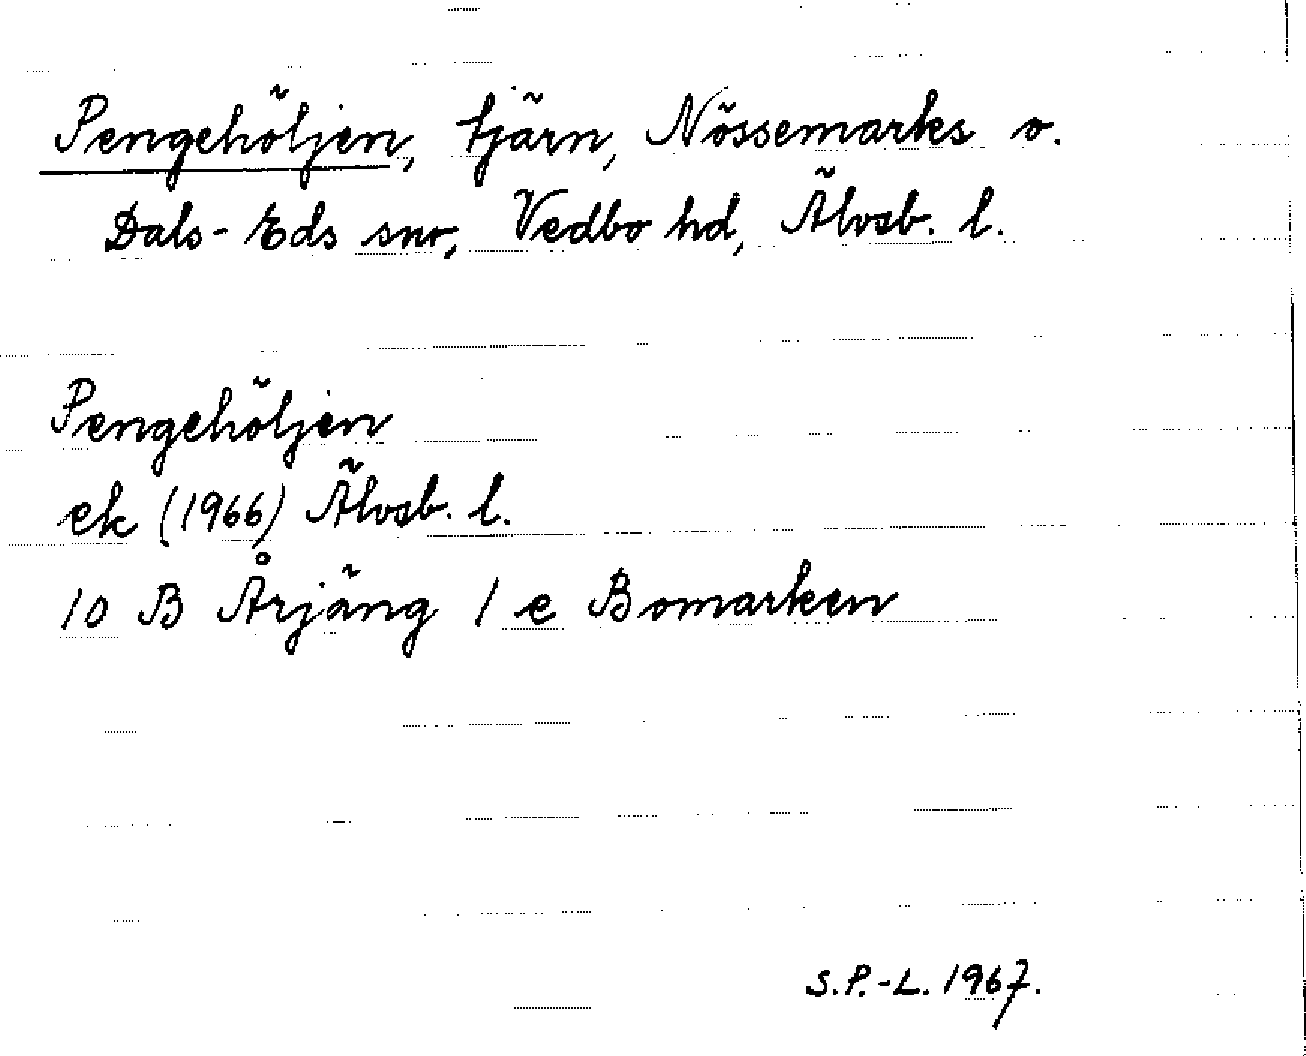 Pengehöljen, tjärn, Nössemarks o.
Dals-Eds snr, Vedbo hd, Älvsb. l.
Pengehöljen
ek (1966) Älvsb. l.
10 B Årjäng 1 e Bomarken
S.P.-L. 1967.